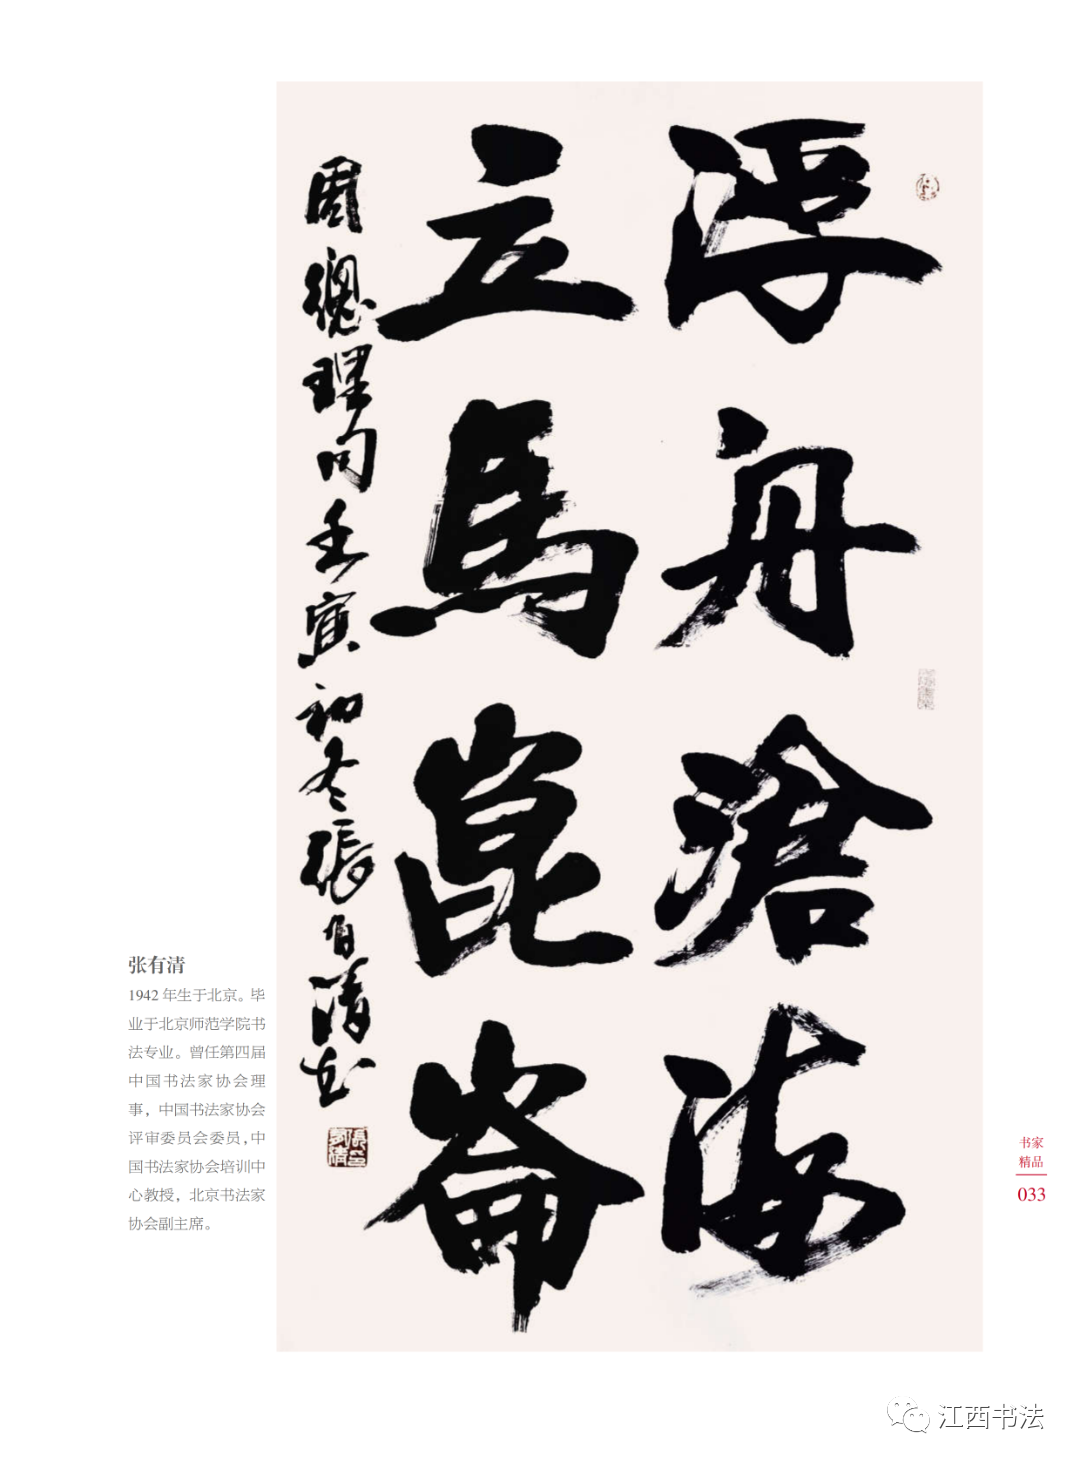 浮舟滄海
立馬崑崙
周總理句壬寅初冬張有清書
张有清
1942 年生于北京。毕
业于北京师范学院书
法专业。曾任第四届
中国书法家协会理
事，中国书法家协会
评审委员会委员，中
国书法家协会培训中
心教授，北京书法家
协会副主席。
书家
精品
033
江西书法